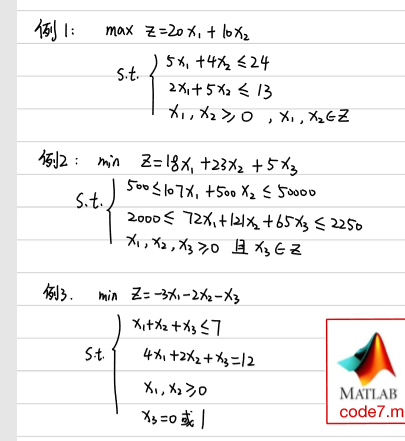 例1: max z=20x₁+10x₂
s.t. { 5x₁+4x₂≤24
2x₁+5x₂≤13
x₁,x₂≥0 , x₁,x₂∈Z
例2: min z=18x₁+23x₂+5x₃
s.t. { 500≤107x₁+500x₂≤50000
2000≤72x₁+121x₂+65x₃≤2250
x₁,x₂,x₃≥0 且 x₃∈Z
例3. min z=-3x₁-2x₂-x₃
s.t. { x₁+x₂+x₃≤7
4x₁+2x₂+x₃=12
x₁,x₂≥0
x₃=0或1
MATLAB
code7.m